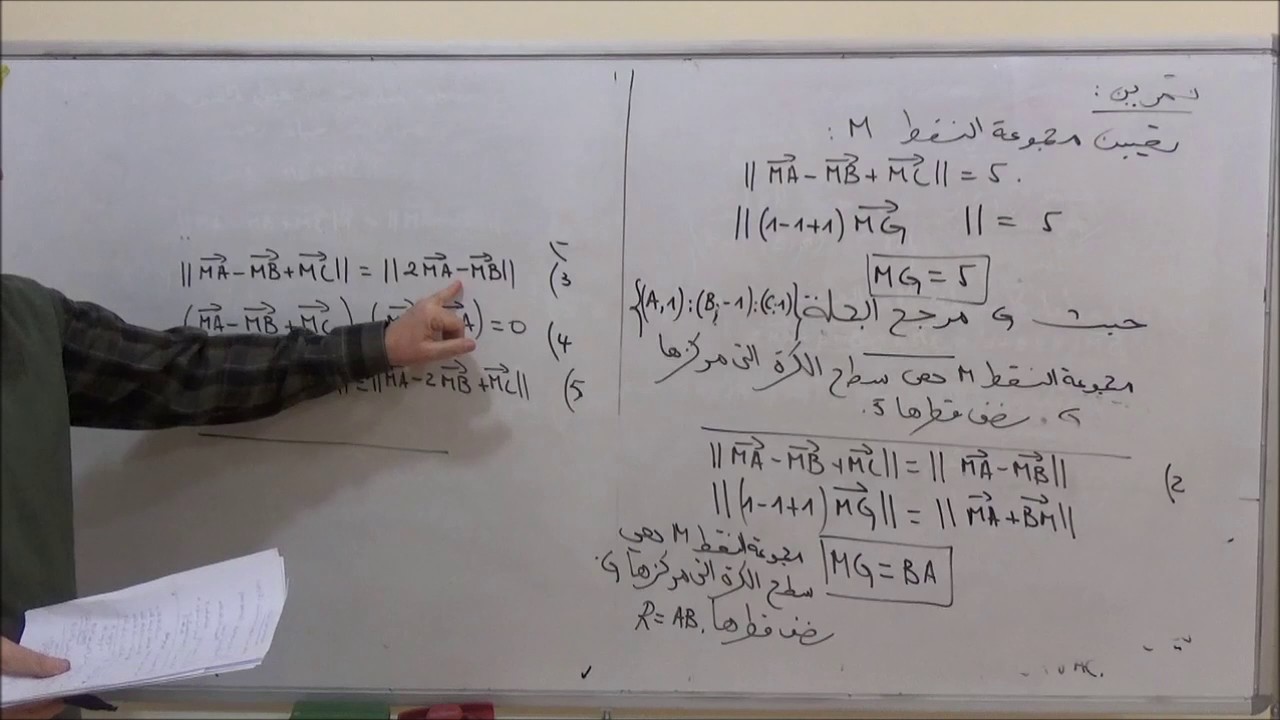 تمرين :
تعيين مجموعة النقط M :
|| MA⃗ - MB⃗ + MC⃗ || = 5 .
|| (1-1+1) MG⃗ || = 5
MG = 5
حيث G مرجح الجملة {(A,1);(B,-1);(C,1)}
مجموعة النقط M هي سطح الكرة التي مركزها
G . نصف قطرها 5.
2) || MA⃗ - MB⃗ + MC⃗ || = || MA⃗ - MB⃗ ||
|| (1-1+1) MG⃗ || = || MA⃗ + BM⃗ ||
MG = BA
مجموعة النقط M هي
سطح الكرة التي مركزها G.
نصف قطرها R = AB.
3) || MA⃗ - MB⃗ + MC⃗ || = || 2MA⃗ - MB⃗ ||
4) (MA⃗ - MB⃗ + MC⃗) A) = 0
5) MA⃗ - 2MB⃗ + MC⃗ ||